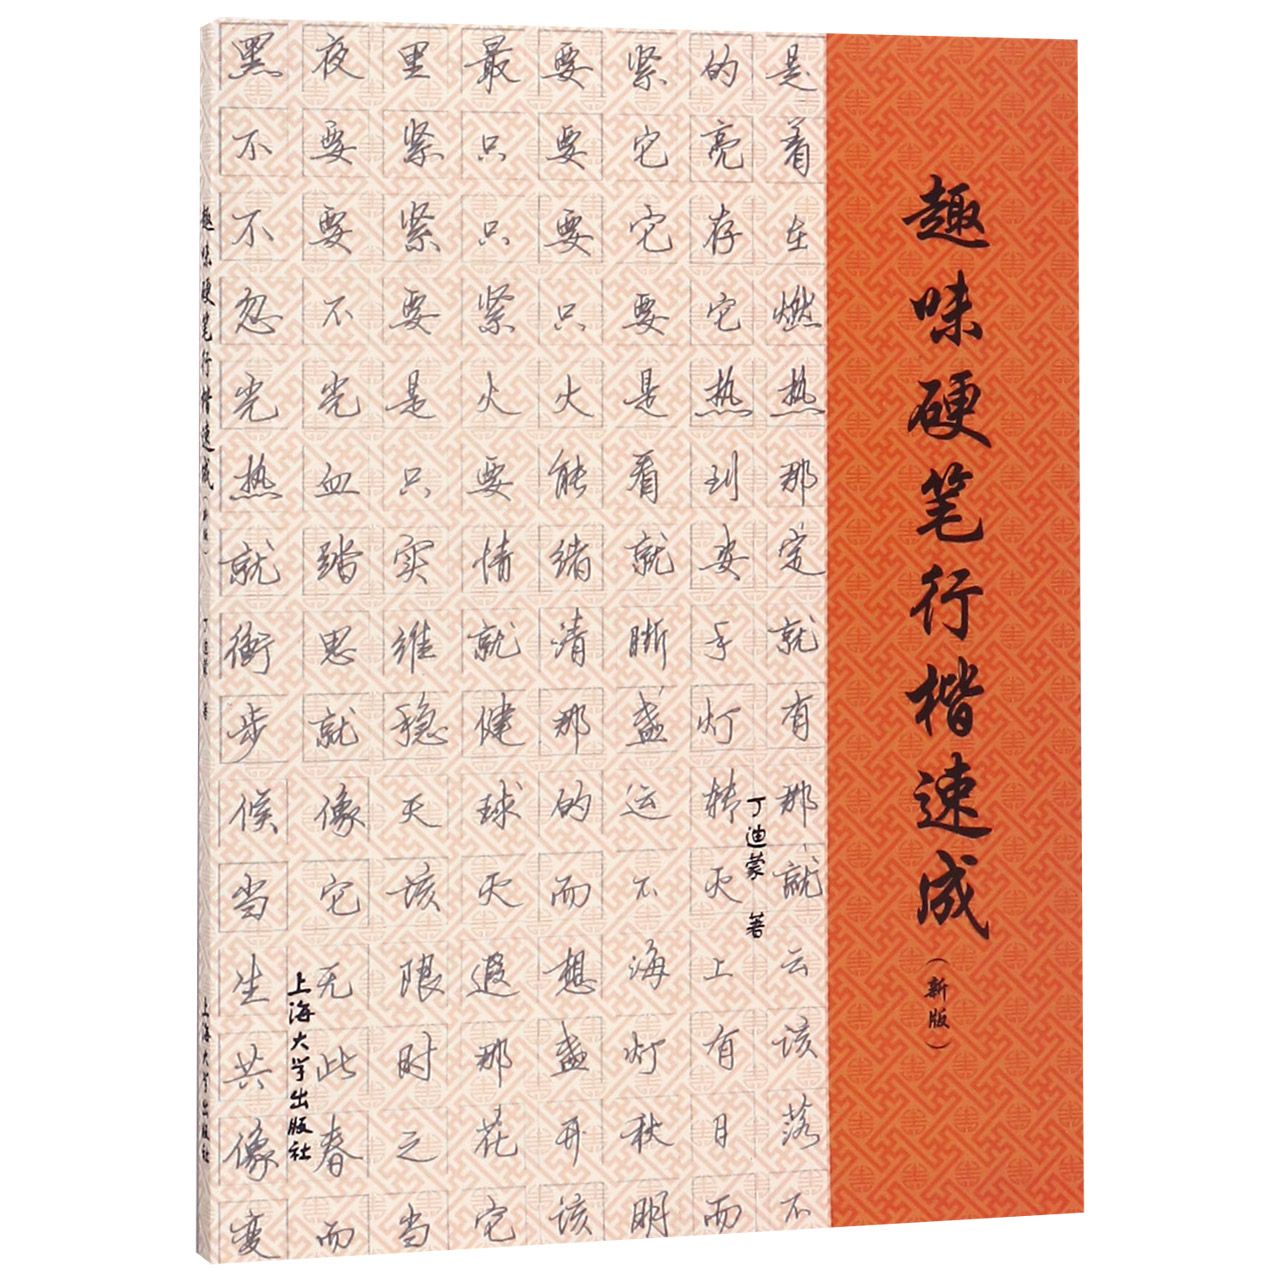 趣味硬笔行楷速成
(新版)
丁迪蒙 著
上海大学出版社
黑夜里最要紧的是
不要紧只要它亮着
不要紧只要它存在
忽不要紧只要它燃
光光是火火是热热
热血只要能看到那
就踏实情绪就安定
衡思维就清晰手就
步就稳健那盏灯有
候像天球的运转那
当它该灭而不灭就
生无限遐想海上云
共此时那盏灯有该
像春之花开秋日落
变而当它该明而不
趣味硬笔行楷速成(新版) 丁迪蒙 著 上海大学出版社